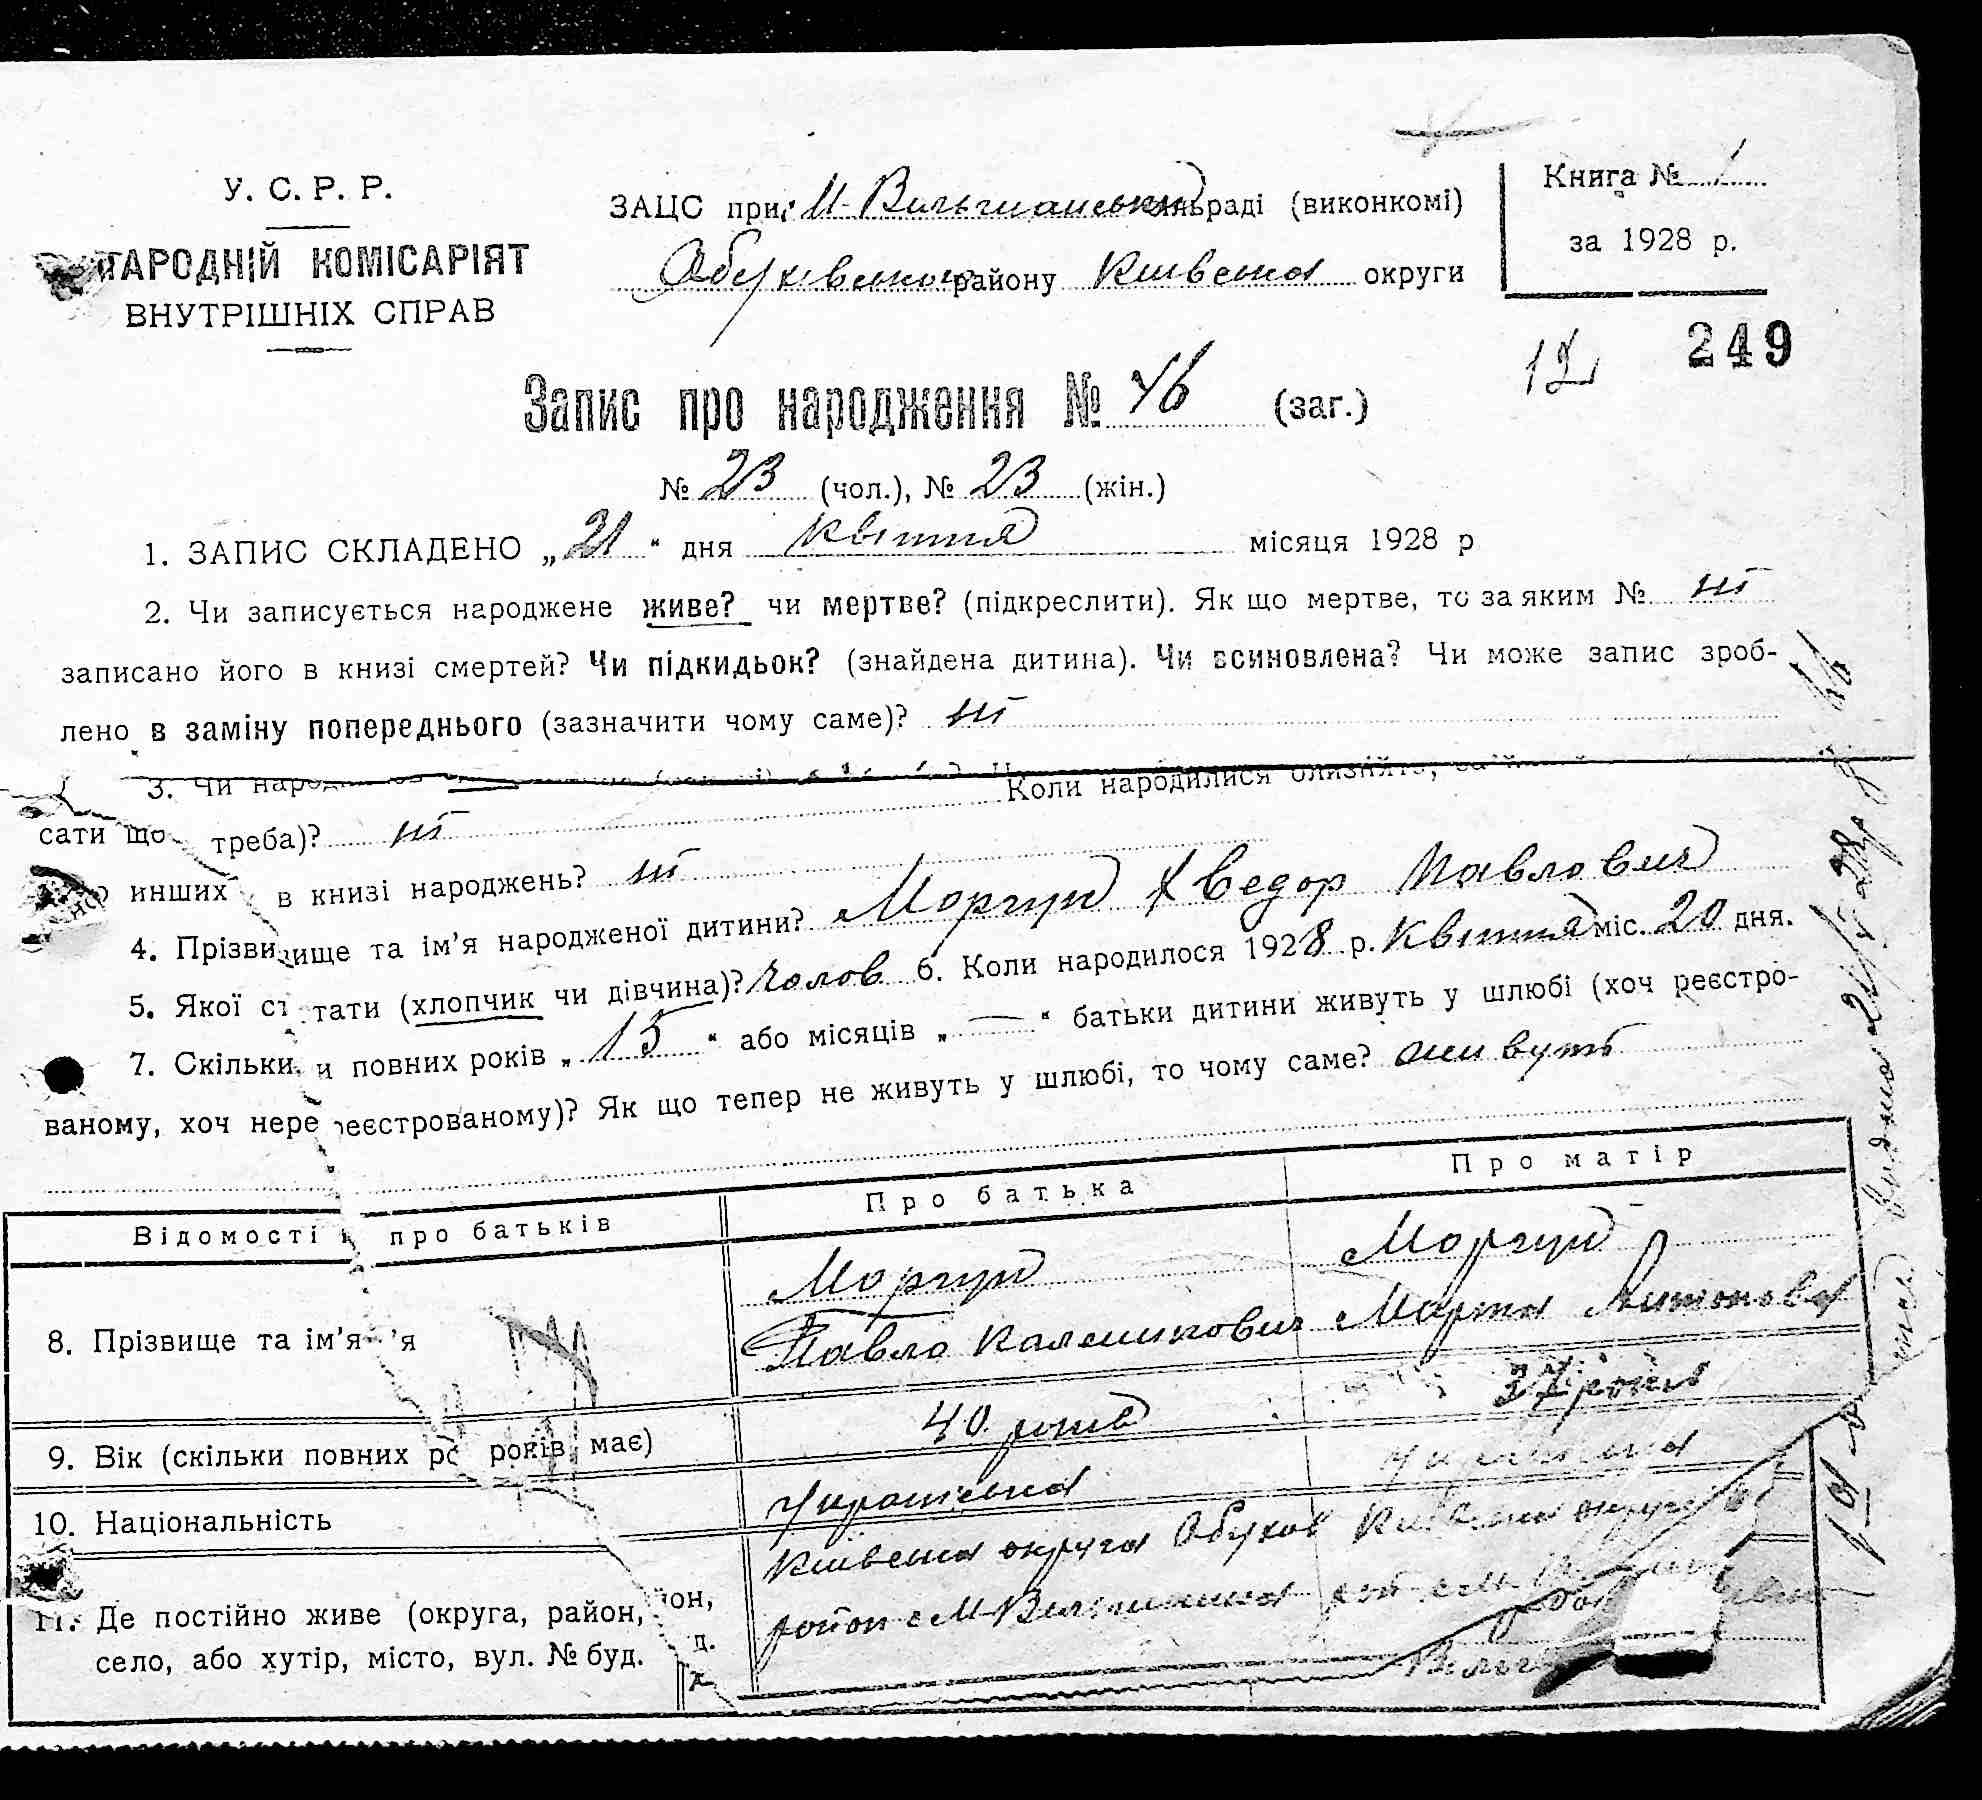 У. С. Р. Р.
НАРОДНІЙ КОМІСАРІЯТ
ВНУТРІШНІХ СПРАВ
ЗАЦС при М-Вильшанській сільраді (виконкомі)
Обухівського району Київська округи
Книга № 1
за 1928 р.
12 249
Запис про народження № 46 (заг.)
№ 23 (чол.), № 23 (жін.)
1. ЗАПИС СКЛАДЕНО „21“ дня Квітня місяця 1928 р
2. Чи записується народжене живе? чи мертве? (підкреслити). Як що мертве, то за яким № ні
записано його в книзі смертей? Чи підкидьок? (знайдена дитина). Чи всиновлена? Чи може запис зроб-
лено в заміну попереднього (зазначити чому саме)? ні
3. Чи народ Коли народилися близнята,
сати що треба)? ні
инших в книзі народжень? ні
4. Прізвище та ім'я народженої дитини? Моргун Хведор Павлович
5. Якої статі (хлопчик чи дівчина)? Чолов 6. Коли народилося 1928 р. Квітня міс. 20 дня.
7. Скільки повних років „15“ або місяців „—“ батьки дитини живуть у шлюбі (хоч реєстро-
ваному, хоч нереєстрованому)? Як що тепер не живуть у шлюбі, то чому саме? живуть
Відомості про батьків Про батька Про матір
8. Прізвище та ім'я Моргун Моргун
Павло Каленикович Марта Антонова
9. Вік (скільки повних років має) 40 років 37 років
10. Національність Українська Українська
11. Де постійно живе (округа, район,
село, або хутір, місто, вул. № буд.
Київська округа Обухов Київська округа
район с М-Вильшанка